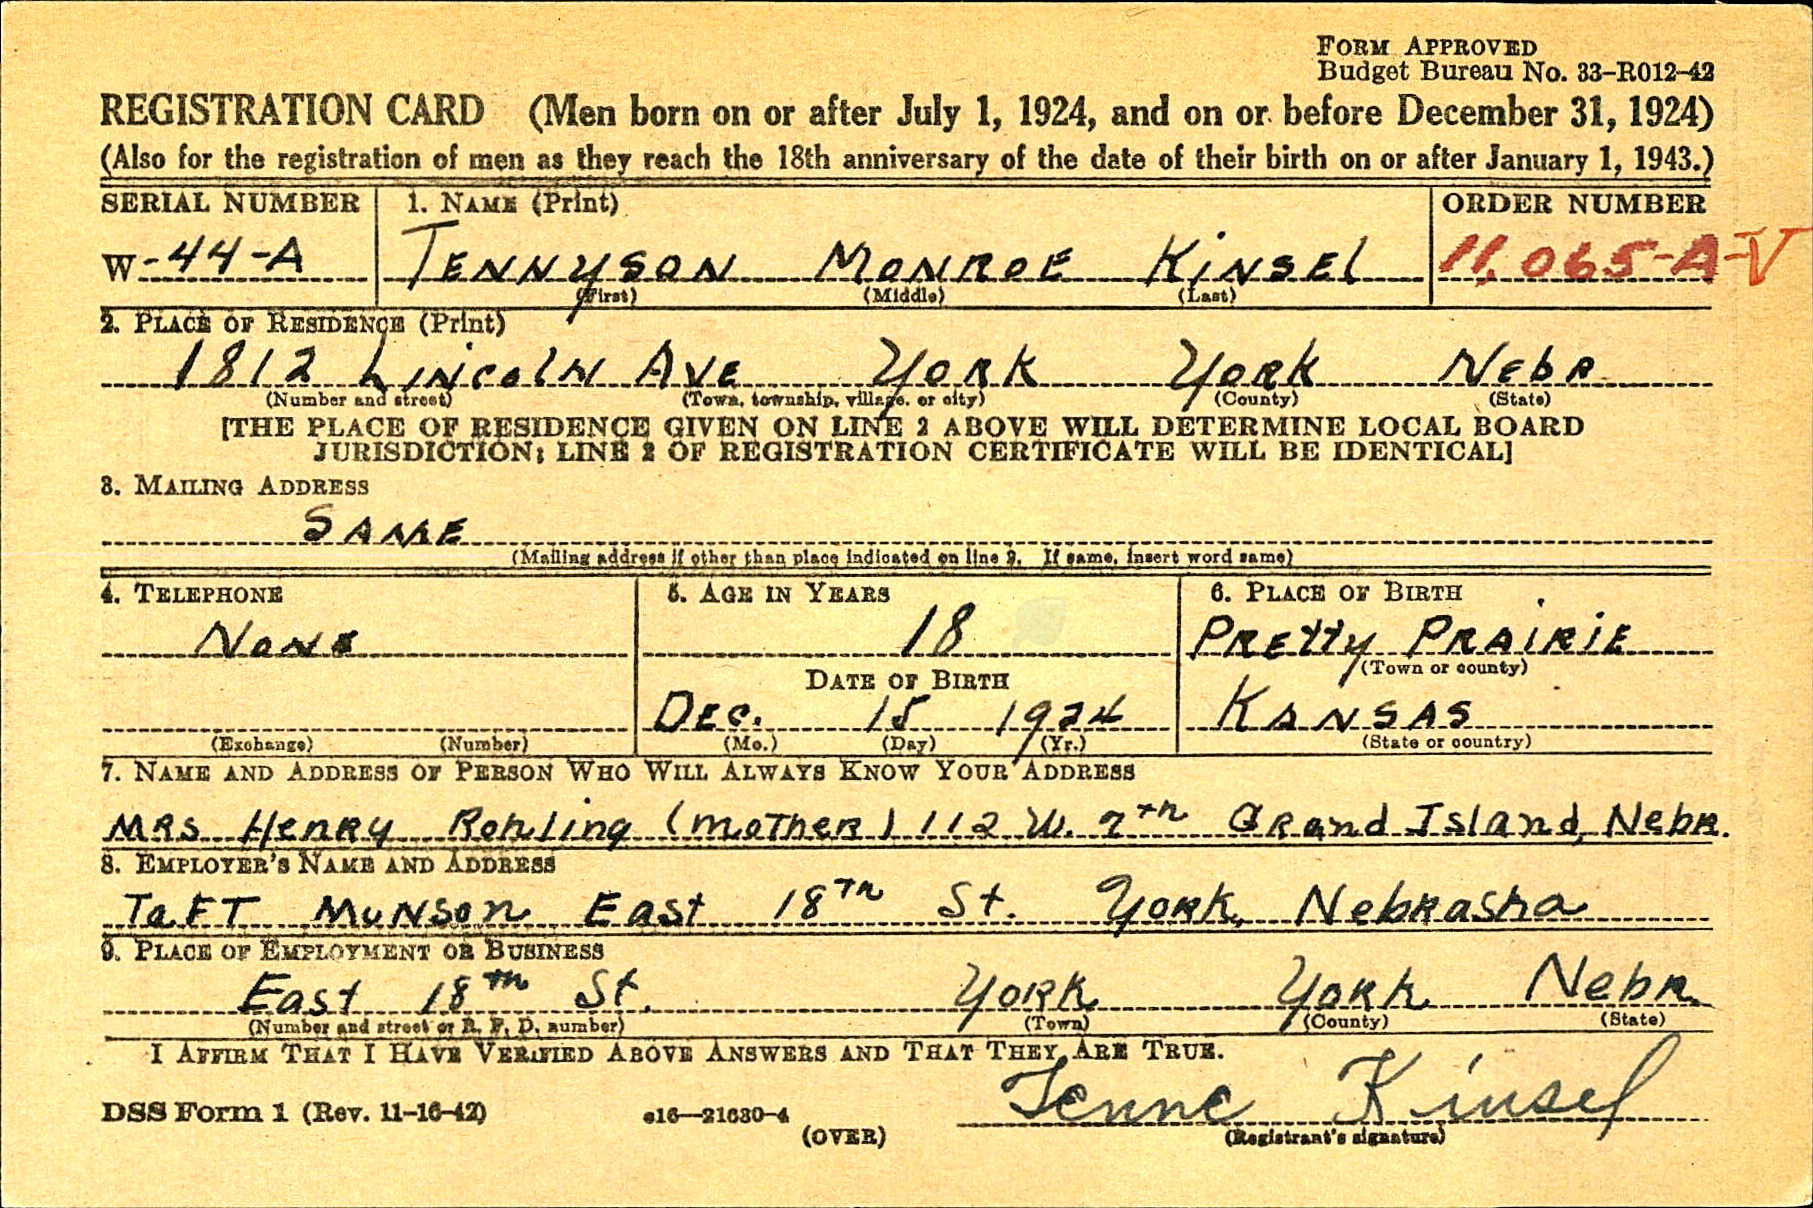 FORM APPROVED
Budget Bureau No. 33-R012-42
REGISTRATION CARD (Men born on or after July 1, 1924, and on or before December 31, 1924)
(Also for the registration of men as they reach the 18th anniversary of the date of their birth on or after January 1, 1943.)
SERIAL NUMBER 1. NAME (Print) ORDER NUMBER
W-44-A TENNYSON MONROE KINSEL 11,065-A-V
(First) (Middle) (Last)
2. PLACE OF RESIDENCE (Print)
1812 LINCOLN AVE YORK YORK NEBR
(Number and street) (Town, township, village, or city) (County) (State)
[THE PLACE OF RESIDENCE GIVEN ON LINE 2 ABOVE WILL DETERMINE LOCAL BOARD
JURISDICTION; LINE 2 OF REGISTRATION CERTIFICATE WILL BE IDENTICAL]
3. MAILING ADDRESS
SAME
(Mailing address if other than place indicated on line 2. If same, insert word same)
4. TELEPHONE 5. AGE IN YEARS 6. PLACE OF BIRTH
NONE 18 PRETTY PRAIRIE
(Town or county)
DATE OF BIRTH
DEC. 15 1924 KANSAS
(Exchange) (Number) (Mo.) (Day) (Yr.) (State or country)
7. NAME AND ADDRESS OF PERSON WHO WILL ALWAYS KNOW YOUR ADDRESS
MRS HENRY Rohling (MOTHER) 112 W. 7th GRand Island, Nebr.
8. EMPLOYER'S NAME AND ADDRESS
TaFT MUNSON East 18TH St. York, Nebraska
9. PLACE OF EMPLOYMENT OR BUSINESS
East 18TH St. York York Nebr.
(Number and street or R. F. D. number) (Town) (County) (State)
I AFFIRM THAT I HAVE VERIFIED ABOVE ANSWERS AND THAT THEY ARE TRUE.
Tenne Kinsel
DSS Form 1 (Rev. 11-16-42) 16—21630-4
(OVER) (Registrant's signature)